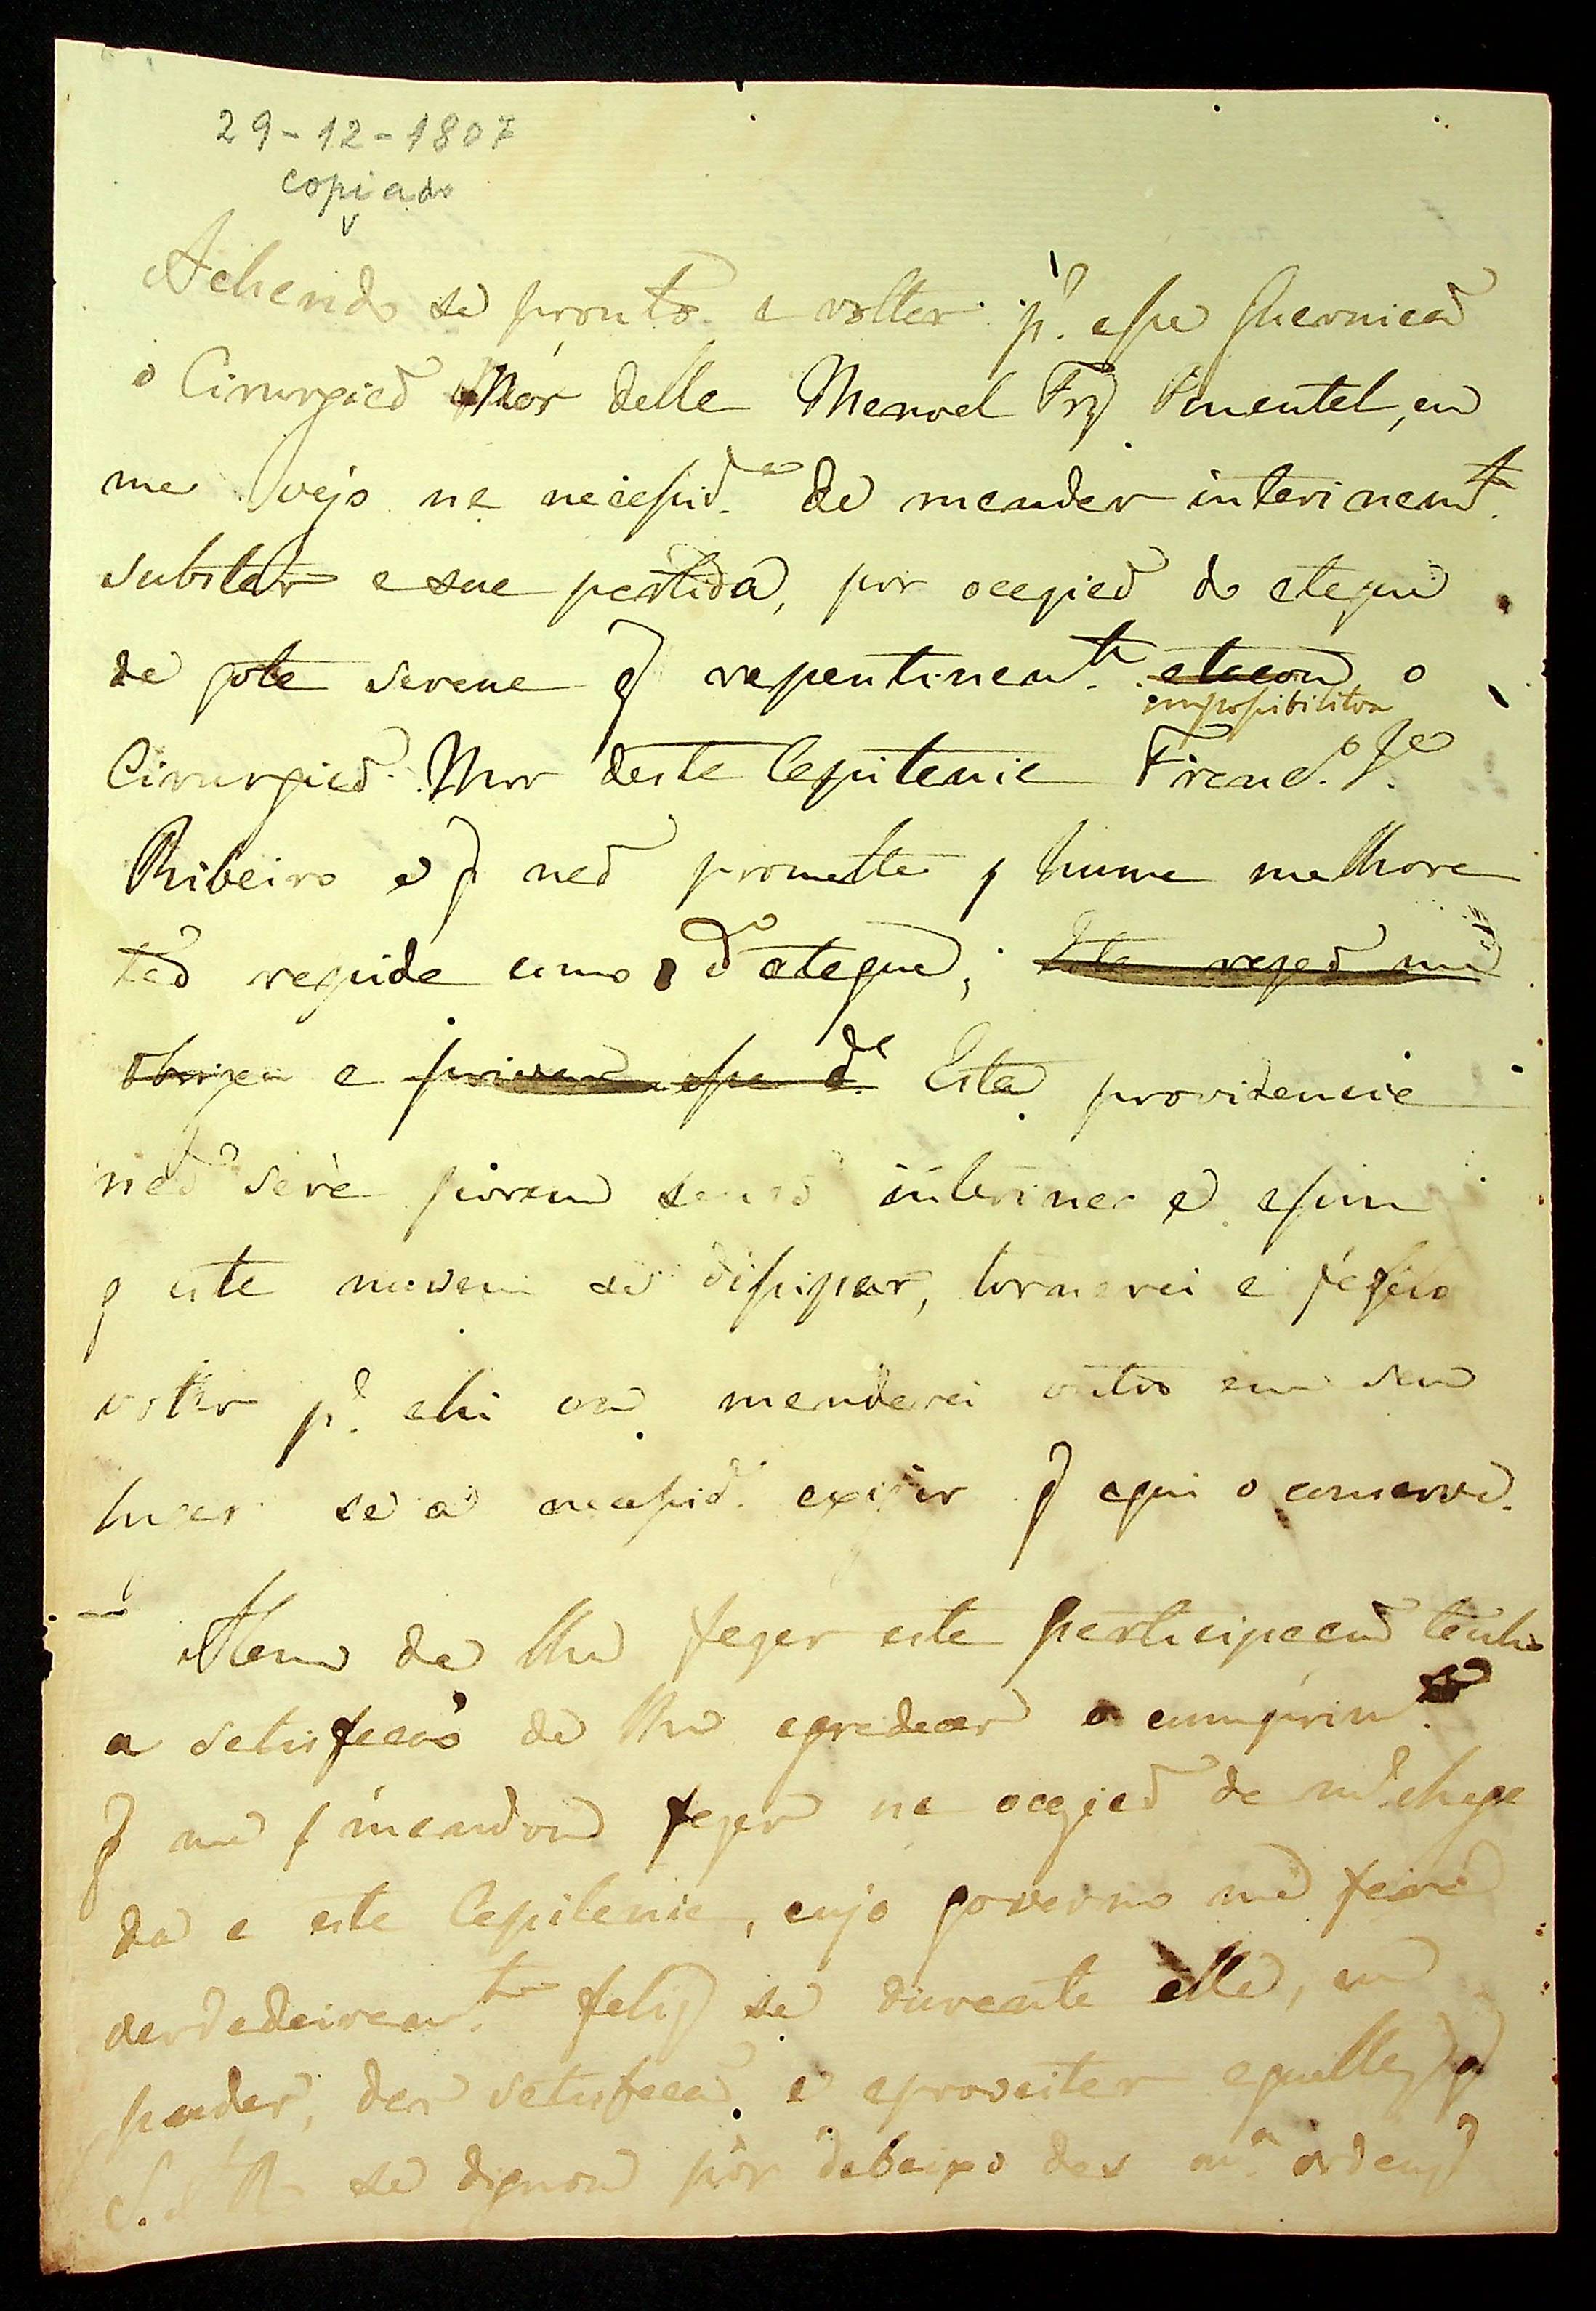 29-12-1807
copiado
Achando se pronto a voltar p.ª essa Guarnicaõ
o Cirurgiaõ Mór della Manoel Frz Pimentel, eu
me vejo na necessid.e de mandar interinam.te
sustar a sua partida, por ocaziaõ do ataque
de gota serena q repentinam.te atacou o
impossibilitou
Cirurgiaõ Mor desta Capitania Franc.º J.e
Ribeiro e q naõ promette huma melhora
taõ rapida como o d.º ataque; Esta rezaõ me
obriga a privar essa d.e Esta providencia
naõ será porem senaõ interina e assim
q esta nuvem se dissipar, tornarei a fazelo
voltar p.ª ahi ou mandarei outro em seu
lugar se a necessid.e exigir q aqui o conserve.
Alem de lhe fazer esta participacaõ tenho
a satisfacaõ de lhe agradecer o cumprim.to
q me mandou fazer na ocaziaõ da m.ª chega
da a esta Capitania, cujo governo me fará
verdadeiram.te feliz se durante elle, eu
puder, dar satisfacaõ e aproveitar aquelles q
S. A. R. se dignou pôr debaixo das m.as ordens